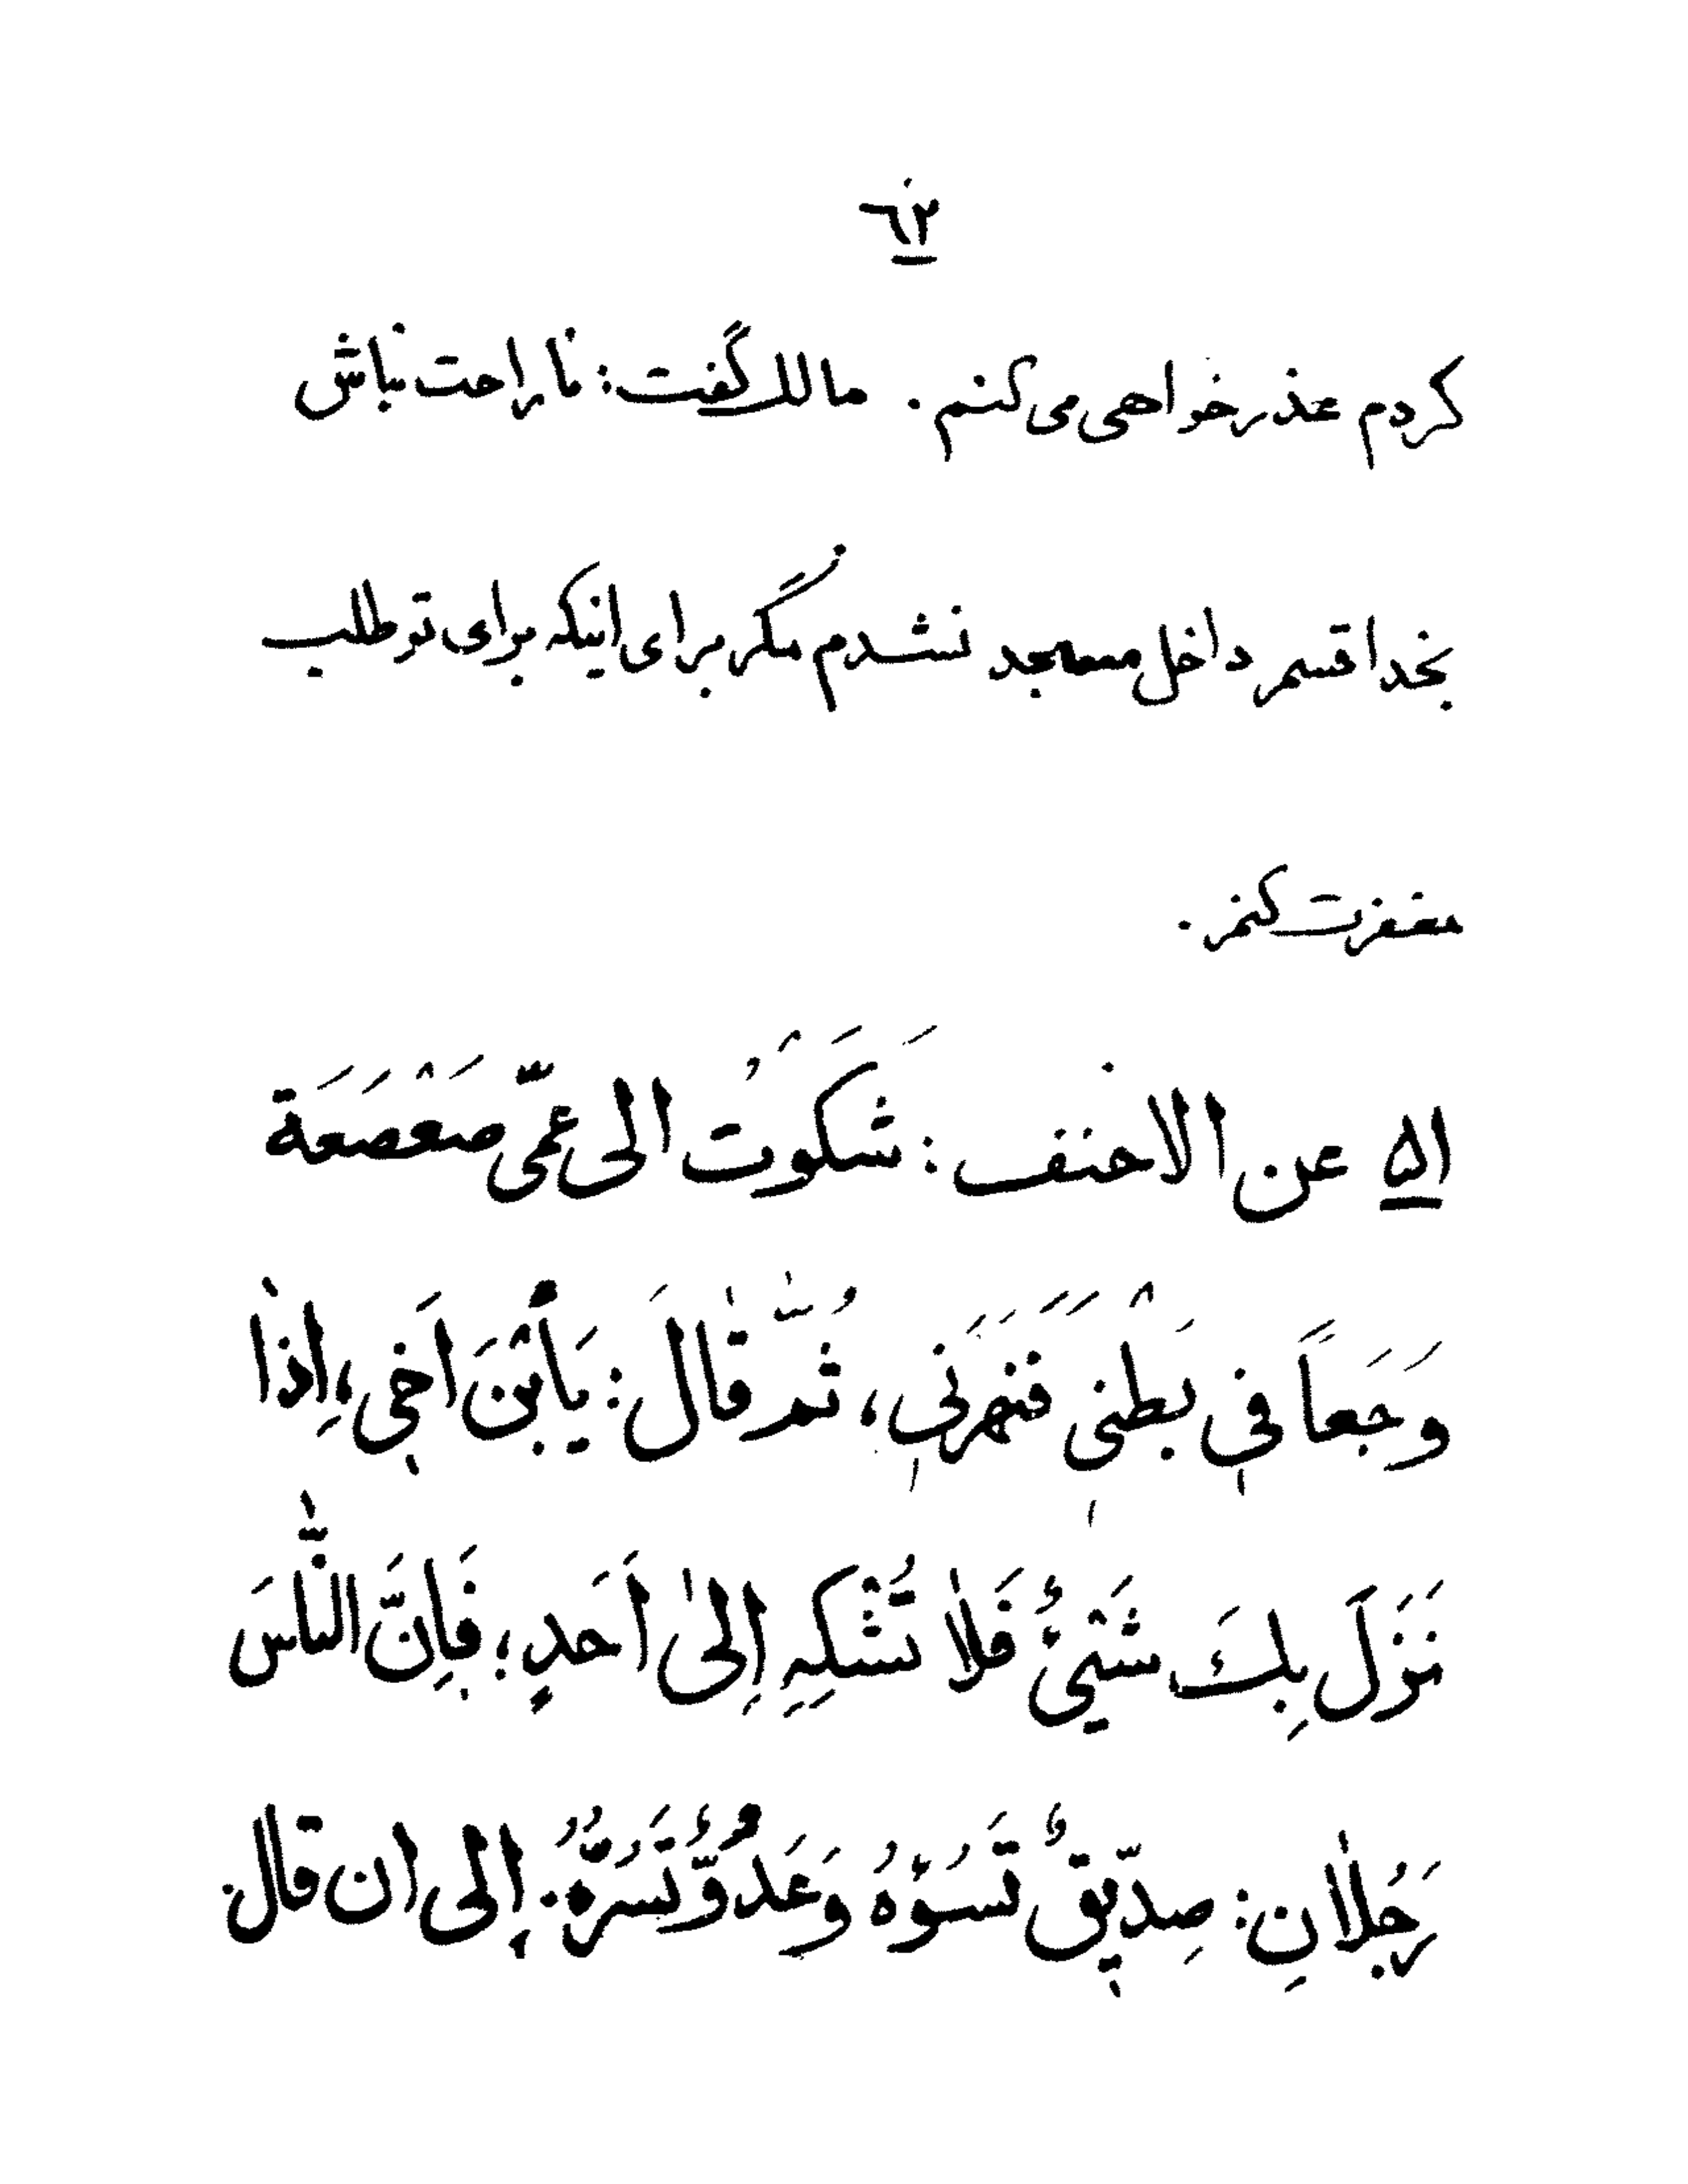 ٦٢
کردم عذر خواهی می کنم. مالک گفت: ناراحت نباش
بخدا قسم داخل مسجد نشدم مگر برای اینکه برای تو طلب
مغفرت کنم.
٥١ عن الاحنف: شَكَوْتُ الی عمّی صَعْصَعَة
وَجَعاً فی بَطْنی فَنَهَرَنی، ثُمَّ قٰالَ: یَأبْنَ اَخی، اِذٰا
نَزَلَ بِكَ شَیْیٌٔ فَلاٰ تَشْکُهِ اِلیٰ اَحَدٍ؛ فَاِنَّ النّٰاسَ
رَجُلاٰنِ: صِدّیقٌ تَسُوْهُ وَعَدُوٌّ تَسُرُّهُ. إلی ان قال.